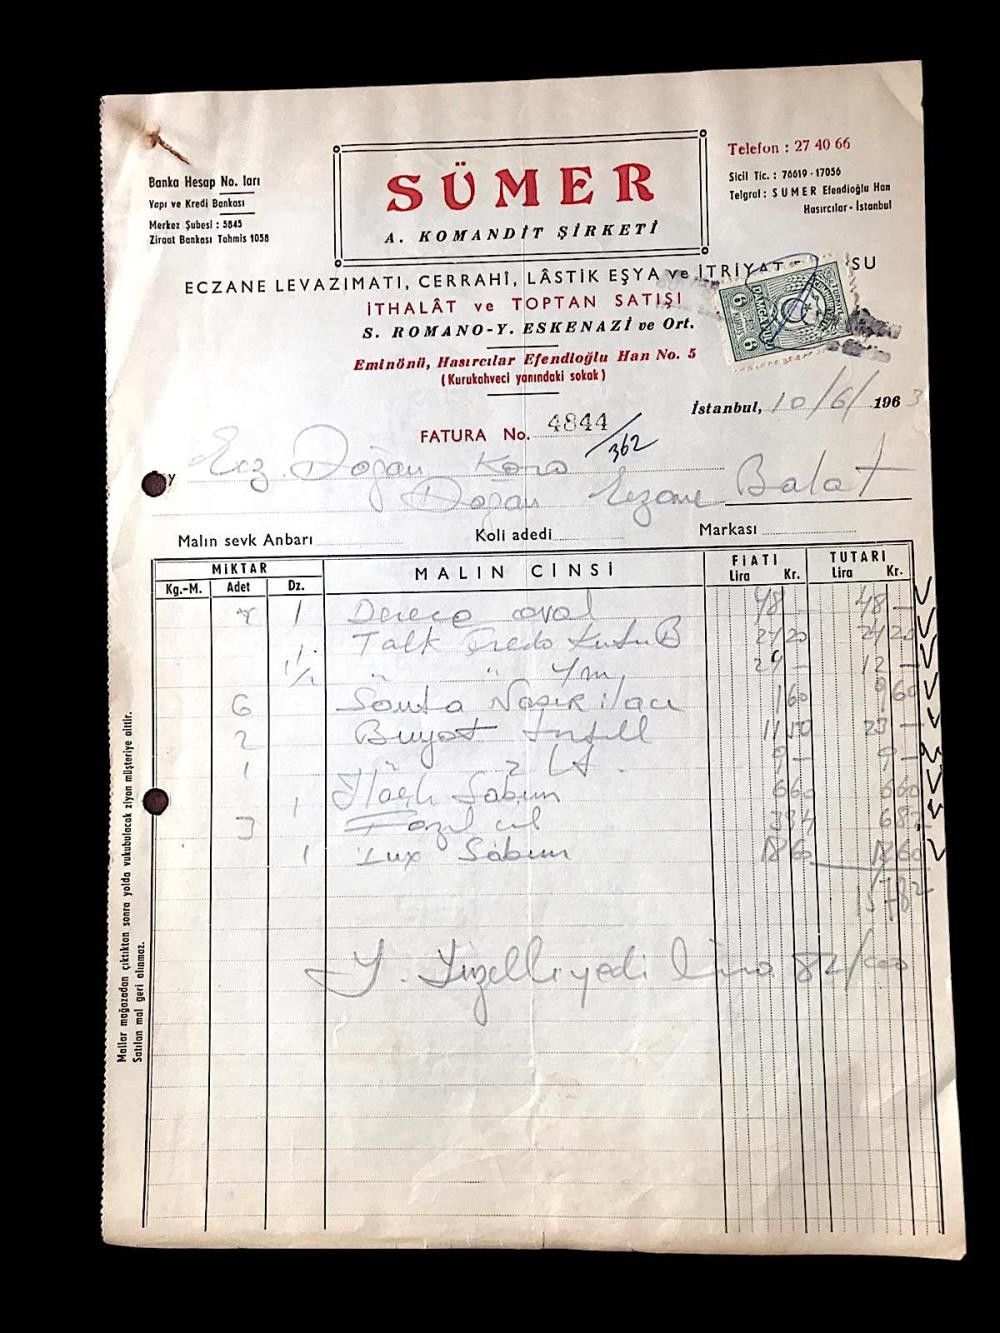 Banka Hesap No. ları
Yapı ve Kredi Bankası
Merkez Şubesi : 5845
Ziraat Bankası Tahmis 1058
SÜMER
A. KOMANDİT ŞİRKETİ
Telefon : 27 40 66
Sicil Tic. : 76619 - 17056
Telgraf : SUMER Efendioğlu Han
Hasırcılar - İstanbul
ECZANE LEVAZIMATI, CERRAHÎ, LÂSTİK EŞYA ve İTRİYAT SU
İTHALÂT ve TOPTAN SATIŞI
S. ROMANO - Y. ESKENAZİ ve Ort.
Eminönü, Hasırcılar Efendioğlu Han No. 5
(Kurukahveci yanındaki sokak)
6 DAMGA PULU 6
İstanbul, 10/6/ 1963
FATURA No. 4844/362
Ecz. Doğan Kara
Doğan Eczane Balat
Malın sevk Anbarı Koli adedi Markası
MİKTAR MALIN CİNSİ FİATI TUTARI
Kg.-M. Adet Dz. Lira Kr. Lira Kr.
1 Derece oval 48 - 48 -
1 Talk Kutu B
1/2 " " 24 - 12 -
6 Nasır ilacı 1 60 9 60
2 11 50 23 -
1 2 Lt. 9 - 9 -
1 Sabun 6 60 6 60
3
1 Lux Sabun 18 60 18 60
157 82
Y. Yüzelliyedi lira 82/000
Mallar mağazadan çıktıktan sonra yolda vukubulacak ziyan müşteriye aittir.
Satılan mal geri alınmaz.